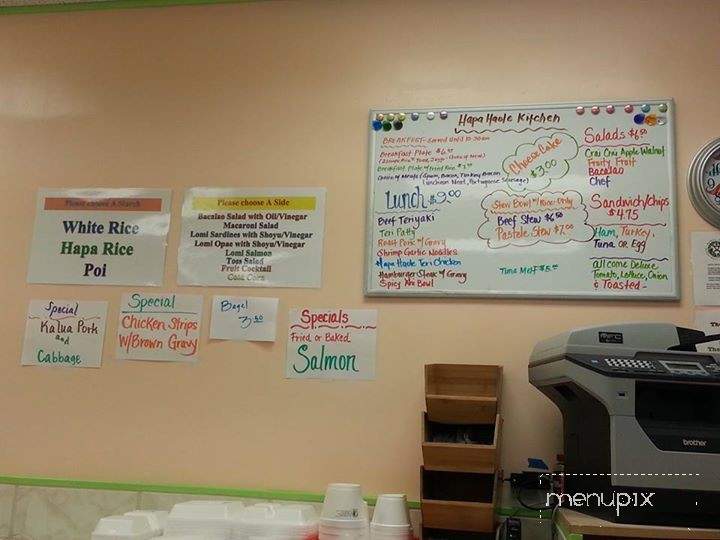 Hapa Haole Kitchen
BREAKFAST - Served Until 10:30am
Breakfast Plate $6.
Breakfast Plate w/Fried Rice $
Choice of Meats (Spam, Bacon, Turkey Bacon
Luncheon Meat, Portuguese Sausage)
Cheese Cake
$3.00
Lunch $9.00
Beef Teriyaki
Teri Patty
Roast Pork w/Gravy
Shrimp Garlic Noodles
Hapa Haole Teri Chicken
Hamburger Steak w/Gravy
Spicy Ahi Bowl
Stew Bowl w/Rice Only
Beef Stew $6.50
Pastele Stew $7.00
Tuna Melt $5.
Salads $6.
Crai Crui Apple Walnut
Fruity Fruit
Bacalao
Chef
Sandwich/Chips
$4.75
Ham, Turkey,
Tuna OR Egg
All come Deluxe
Tomato, Lettuce, Onion
& Toasted -
Please choose A Starch
White Rice
Hapa Rice
Poi
Please choose A Side
Bacalao Salad with Oil/Vinegar
Macaroni Salad
Lomi Sardines with Shoyu/Vinegar
Lomi Opae with Shoyu/Vinegar
Lomi Salmon
Toss Salad
Fruit Cocktail
Cold Corn
Special
Kalua Pork
and
Cabbage
Special
Chicken Strips
W/Brown Gravy
Bagel
3.50
Specials
Fried or Baked
Salmon
MFC
brother
menupix